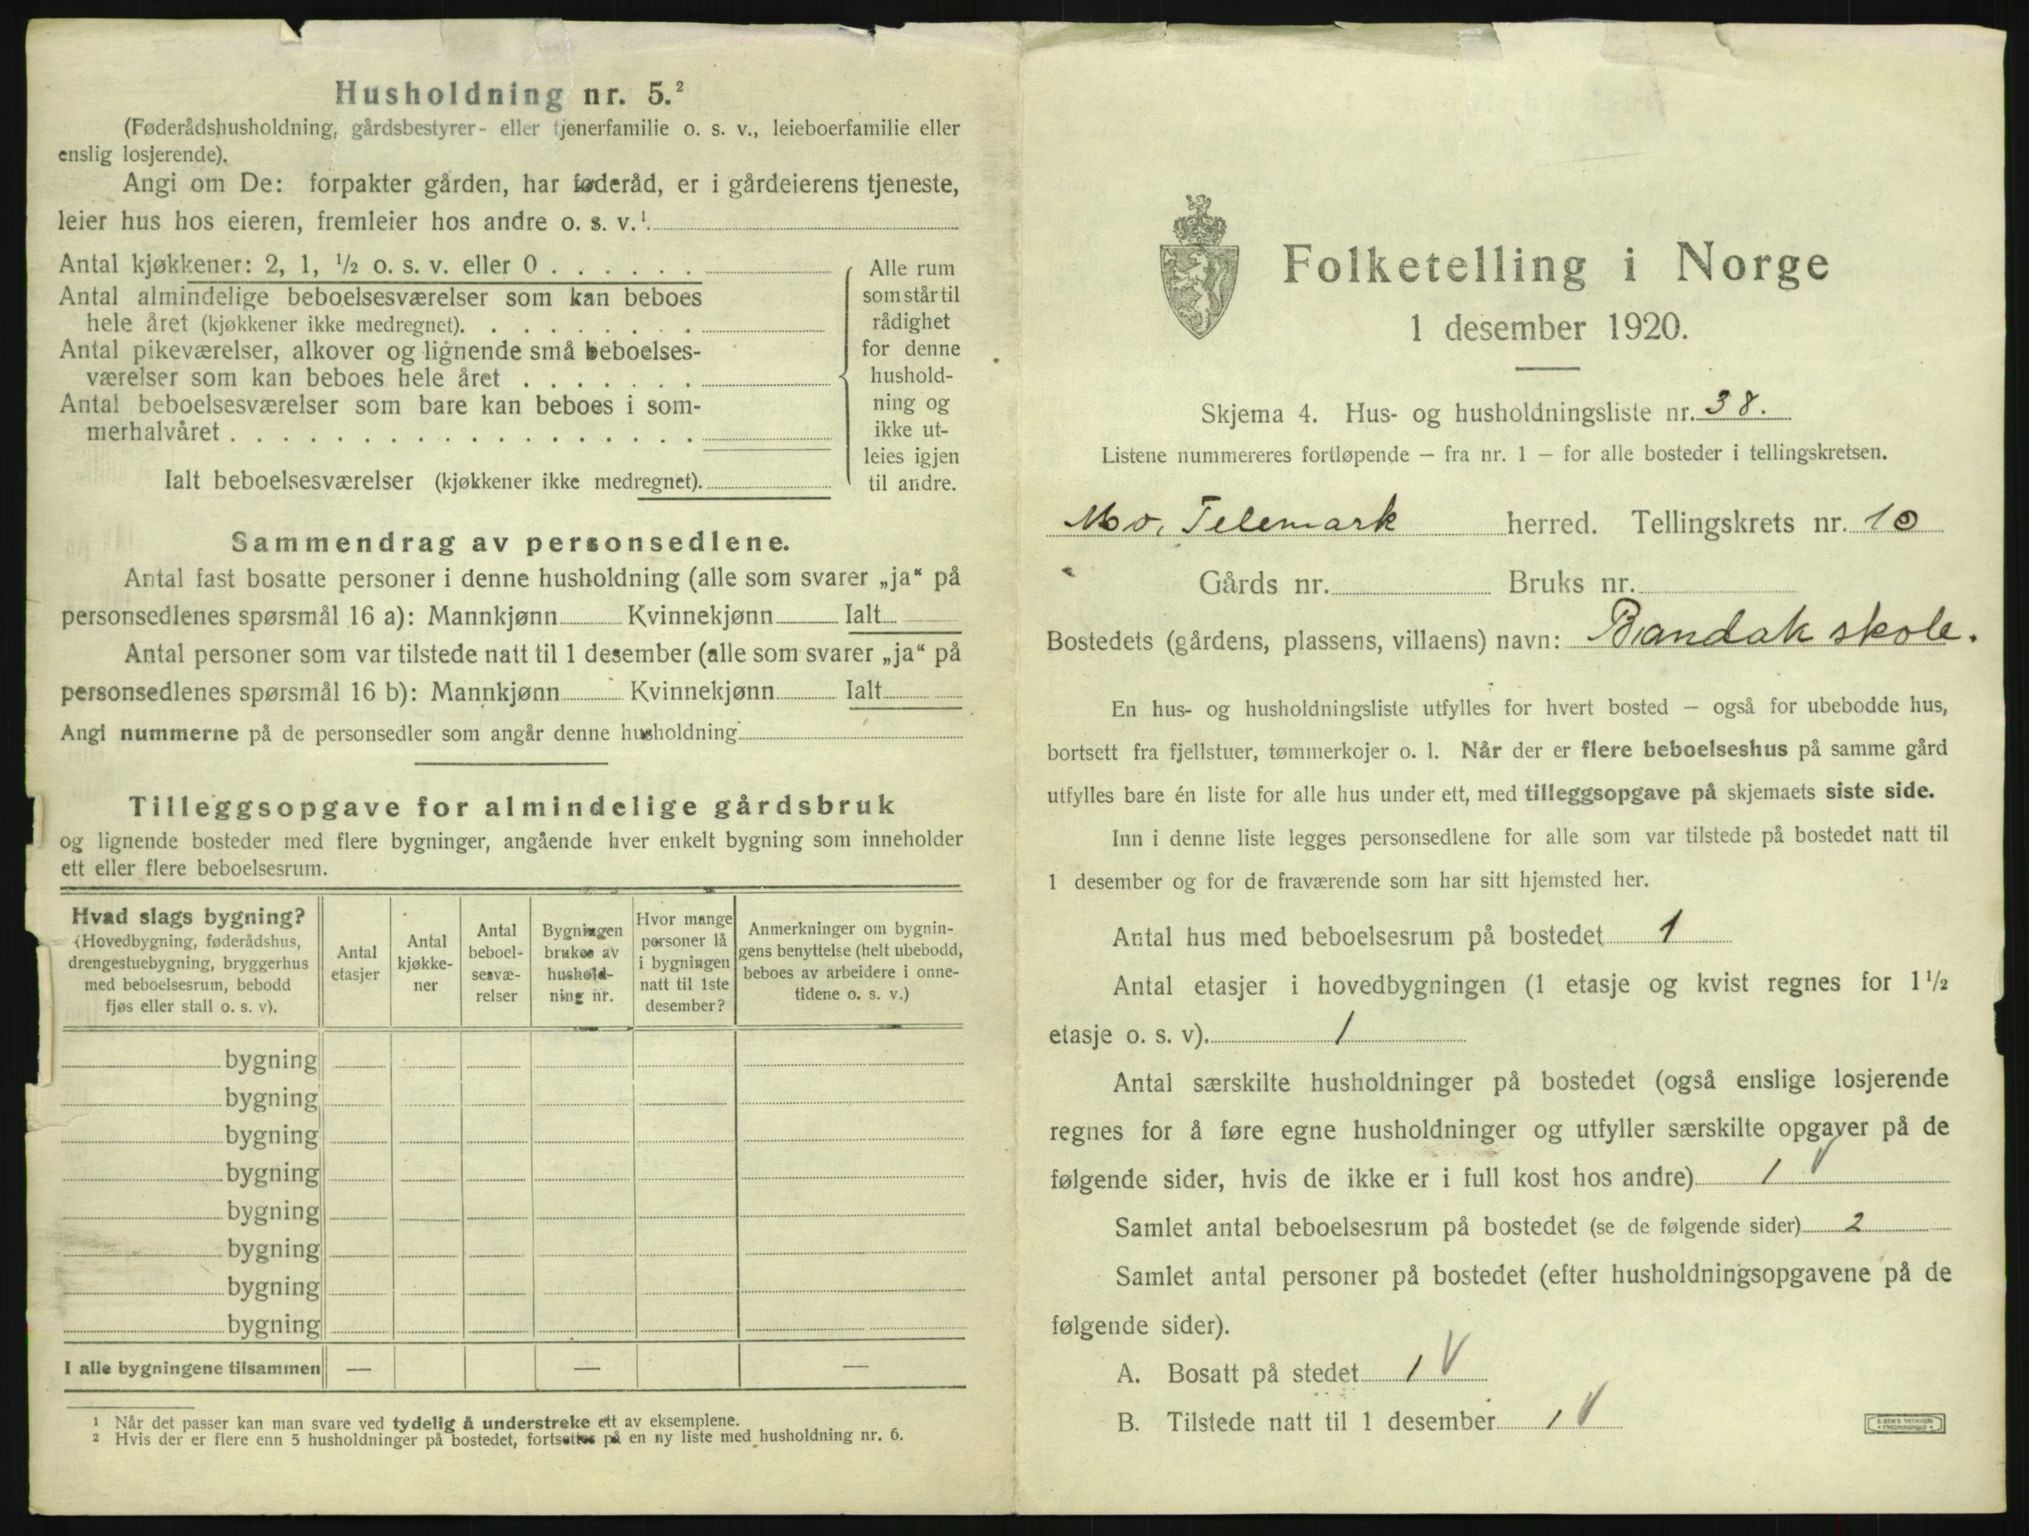 Husholdning nr. 5.²
(Føderådshusholdning, gårdsbestyrer- eller tjenerfamilie o. s. v., leieboerfamilie eller
enslig losjerende).
Angi om De: forpakter gården, har føderåd, er i gårdeierens tjeneste,
leier hus hos eieren, fremleier hos andre o. s. v.¹
Antal kjøkkener: 2, 1, ½ o. s. v. eller 0 . . . . . .
Antal almindelige beboelsesværelser som kan beboes
hele året (kjøkkener ikke medregnet). . . . . . . . .
Antal pikeværelser, alkover og lignende små beboelses-
værelser som kan beboes hele året . . . . . . .
Antal beboelsesværelser som bare kan beboes i som-
merhalvåret . . . . . . . . . . . . . . . . . .
Ialt beboelsesværelser (kjøkkener ikke medregnet).
Alle rum
som står til
rådighet
for denne
hushold-
ning og
ikke ut-
leies igjen
til andre.
Sammendrag av personsedlene.
Antal fast bosatte personer i denne husholdning (alle som svarer „ja“ på
personsedlenes spørsmål 16 a): Mannkjønn Kvinnekjønn Ialt
Antal personer som var tilstede natt til 1 desember (alle som svarer „ja“ på
personsedlenes spørsmål 16 b): Mannkjønn Kvinnekjønn Ialt
Angi nummerne på de personsedler som angår denne husholdning
Tilleggsopgave for almindelige gårdsbruk
og lignende bosteder med flere bygninger, angående hver enkelt bygning som inneholder
ett eller flere beboelsesrum.
Hvad slags bygning?
(Hovedbygning, føderådshus,
drengestuebygning, bryggerhus
med beboelsesrum, bebodd
fjøs eller stall o. s. v).
Antal
etasjer
Antal
kjøkke-
ner
Antal
beboel-
sesvæ-
relser
Bygningen
brukes av
hushold-
ning nr.
Hvor mange
personer lå
i bygningen
natt til 1ste
desember?
Anmerkninger om bygnin-
gens benyttelse (helt ubebodd,
beboes av arbeidere i onne-
tidene o. s. v.)
bygning
bygning
bygning
bygning
bygning
bygning
bygning
bygning
I alle bygningene tilsammen — — —
¹ Når det passer kan man svare ved tydelig å understreke ett av eksemplene.
² Hvis der er flere enn 5 husholdninger på bostedet, fortsettes på en ny liste med husholdning nr. 6.
Folketelling i Norge
1 desember 1920.
Skjema 4. Hus- og husholdningsliste nr. 38.
Listene nummereres fortløpende — fra nr. 1 — for alle bosteder i tellingskretsen.
Mo, Telemark herred. Tellingskrets nr. 10
Gårds nr. Bruks nr.
Bostedets (gårdens, plassens, villaens) navn: Bandak skole.
En hus- og husholdningsliste utfylles for hvert bosted — også for ubebodde hus,
bortsett fra fjellstuer, tømmerkojer o. l. Når der er flere beboelseshus på samme gård
utfylles bare én liste for alle hus under ett, med tilleggsopgave på skjemaets siste side.
Inn i denne liste legges personsedlene for alle som var tilstede på bostedet natt til
1 desember og for de fraværende som har sitt hjemsted her.
Antal hus med beboelsesrum på bostedet 1
Antal etasjer i hovedbygningen (1 etasje og kvist regnes for 1½
etasje o. s. v). 1
Antal særskilte husholdninger på bostedet (også enslige losjerende
regnes for å føre egne husholdninger og utfyller særskilte opgaver på de
følgende sider, hvis de ikke er i full kost hos andre) 1 V
Samlet antal beboelsesrum på bostedet (se de følgende sider) 2
Samlet antal personer på bostedet (efter husholdningsopgavene på de
følgende sider).
A. Bosatt på stedet 1 V
B. Tilstede natt til 1 desember 1 V